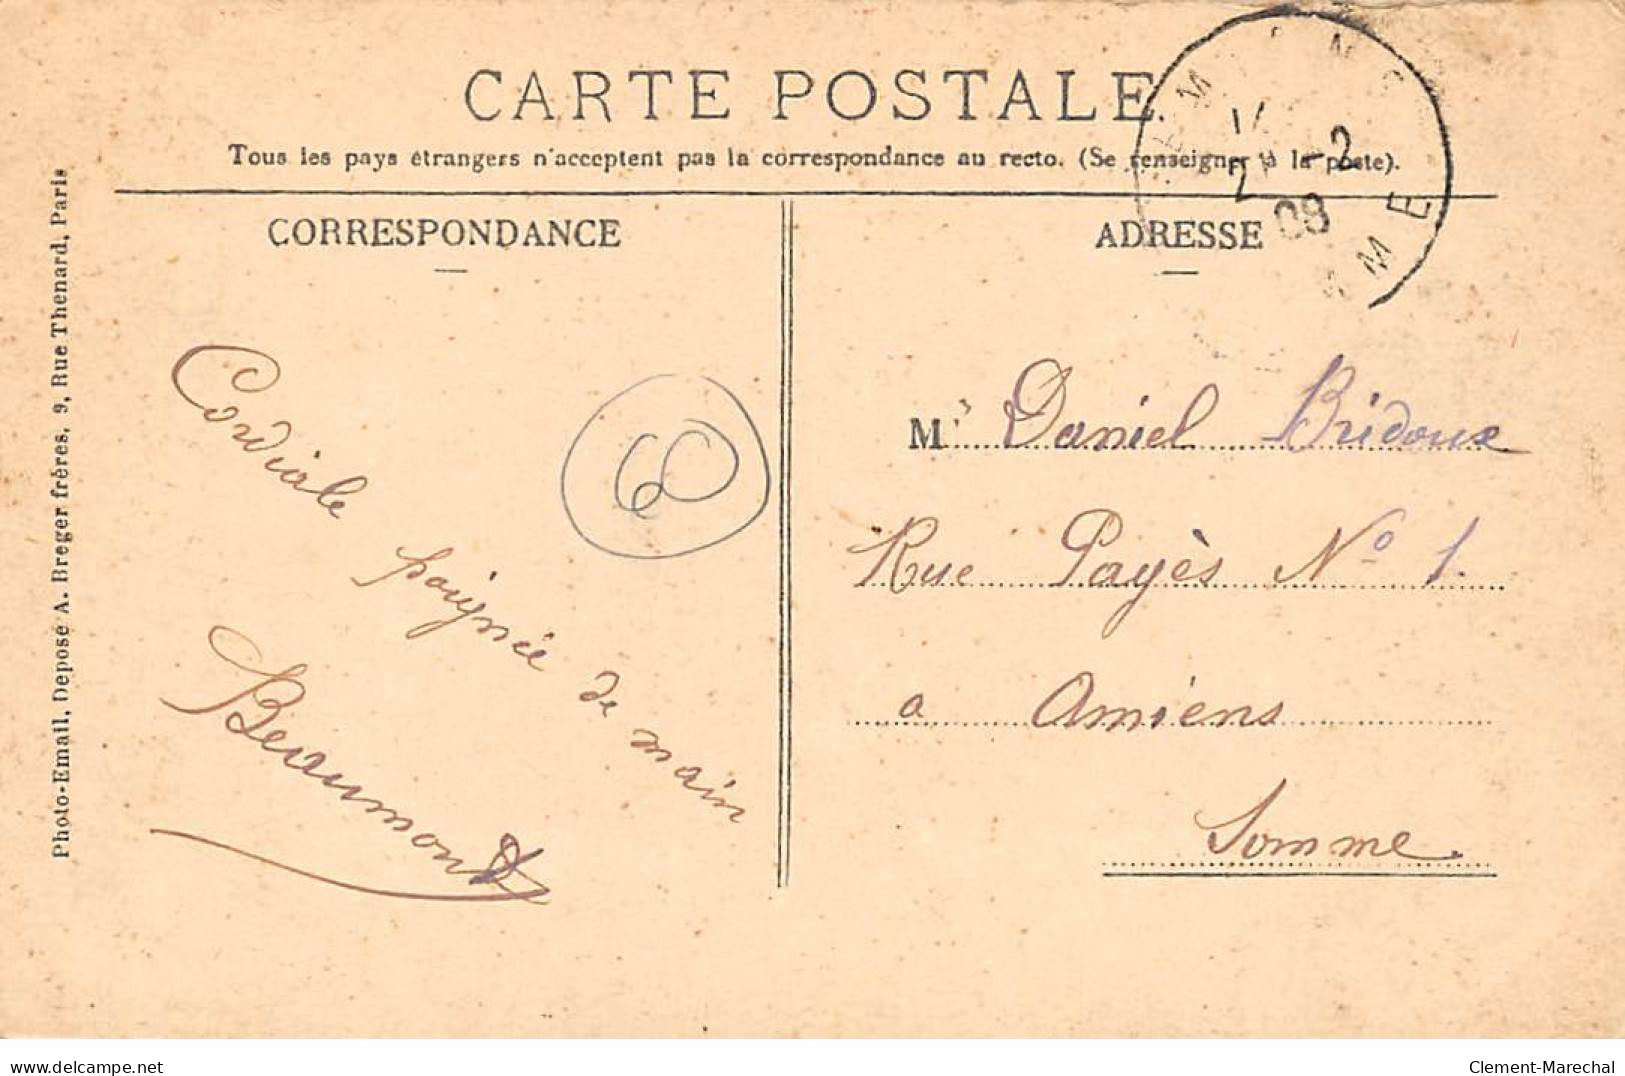 CARTE POSTALE
Tous les pays étrangers n'acceptent pas la correspondance au recto. (Se renseigner à la poste).
CORRESPONDANCE
ADRESSE
Photo-Email, Déposé A. Breger frères, 9, Rue Thenard, Paris
Cordiale poignée de main
Beaumont
60
-2
08
Mr Daniel Bridoux
Rue Pagès No 1.
a Amiens
Somme
delcampe.net
Clement-Marechal